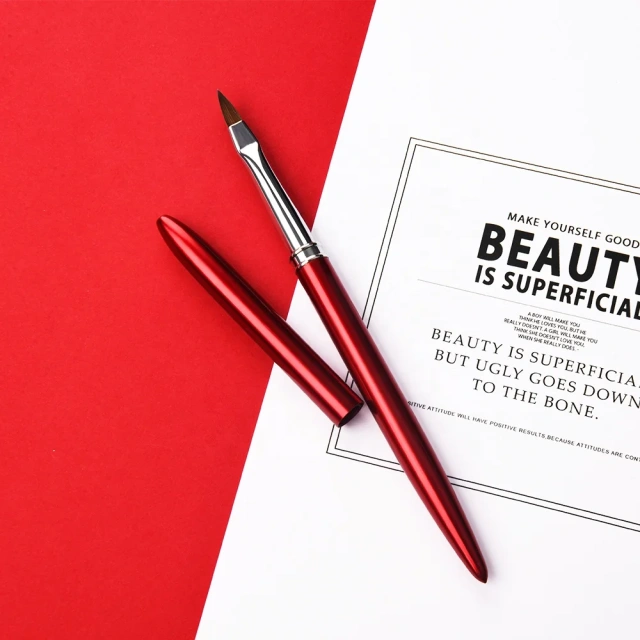 MAKE YOURSELF GOOD
BEAUTY
IS SUPERFICIAL
A BOY WILL MAKE YOU
THINK HE LOVES YOU, BUT HE
REALLY DOESN'T. A GIRL WILL MAKE YOU
THINK SHE DOESN'T LOVE YOU,
WHEN SHE REALLY DOES.
BEAUTY IS SUPERFICIAL
BUT UGLY GOES DOWN
TO THE BONE.
SITIVE ATTITUDE WILL HAVE POSITIVE RESULTS, BECAUSE ATTITUDES ARE CONT